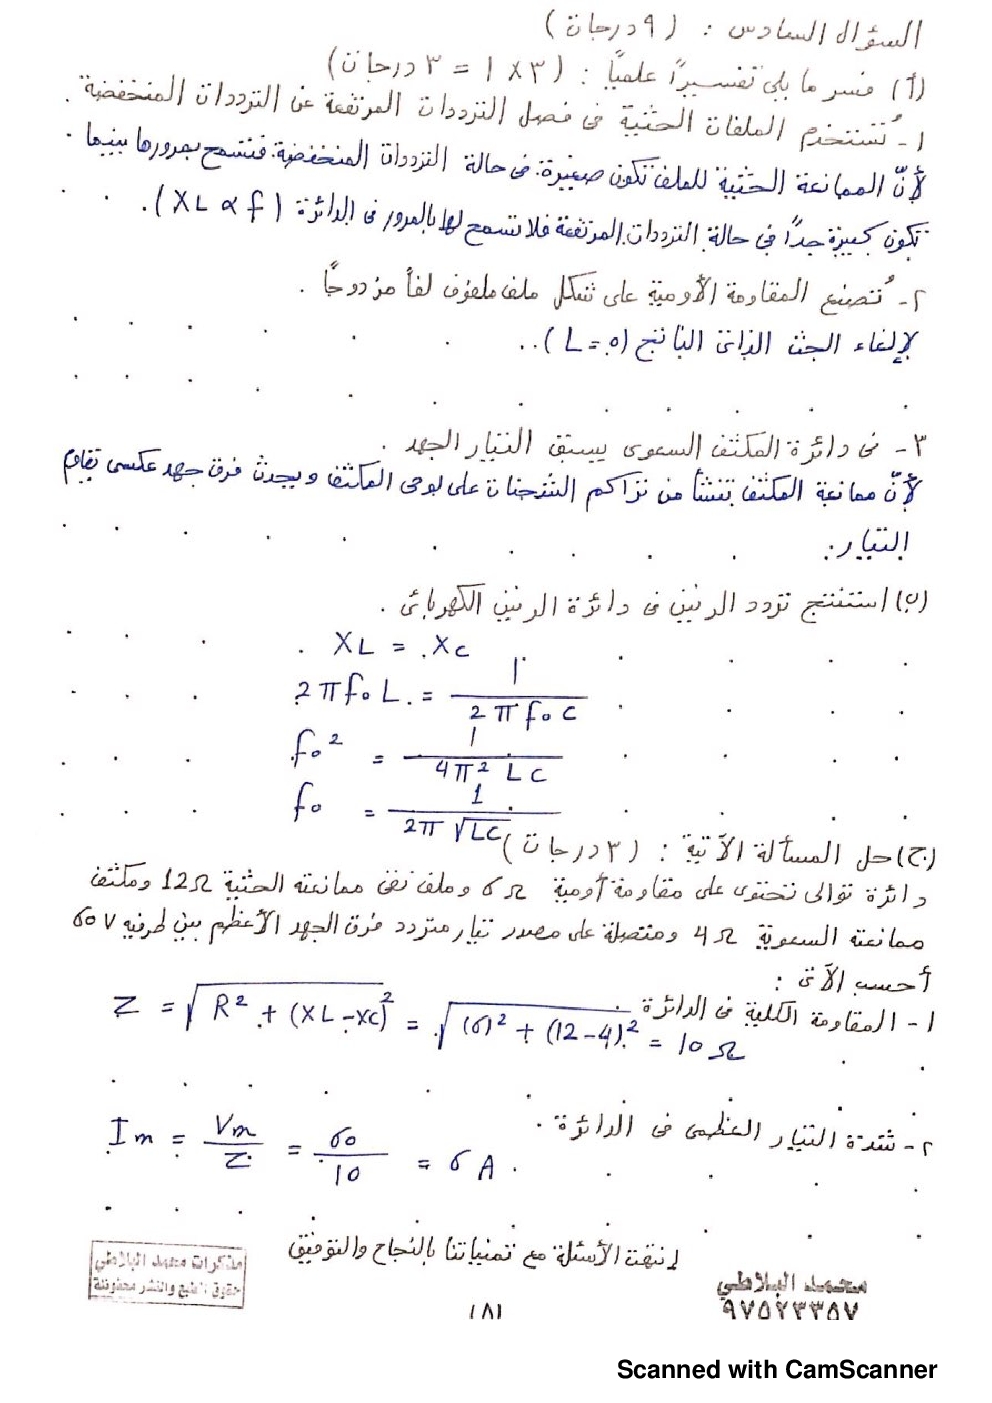 السؤال السادس : ( ٩ درجات )
(أ) فسر ما يلي تفسيراً علمياً : ( ٣ × ١ = ٣ درجات )
١- تُستخدم الملفات الحثية فى فصل الترددات المرتفعة عن الترددات المنخفضة .
لأنّ الممانعة الحثية للملف تكون صغيرة فى حالة الترددات المنخفضة فتسمح بمرورها بينما
تكون كبيرة جداً فى حالة الترددات المرتفعة فلا تسمح لها بالمرور فى الدائرة ( XL ∝ f ).
٢- تُصنع المقاومة الأومية على شكل ملف ملفوف لفاً مزدوجاً .
لإلغاء الحث الذاتى الناتج ( L = 0 )..
٣- فى دائرة المكثف السعوى يسبق التيار الجهد .
لأنّ ممانعة المكثف تنشأ من تراكم الشحنات على لوحى المكثف ويحدث فرق جهد عكسى يقاوم
التيار.
(ب) استنتج تردد الرنين فى دائرة الرنين الكهربائى .
XL = Xc
2πf₀L = 1 / 2πf₀C
f₀² = 1 / 4π² LC
f₀ = 1 / 2π√LC
(ج) حل المسألة الآتية : ( ٣ درجات )
دائرة توالى تحتوى على مقاومة أومية 6Ω وملف نقى ممانعته الحثية 12Ω ومكثف
ممانعته السعوية 4Ω ومتصلة على مصدر تيار متردد فرق الجهد الأعظم بين طرفيه 60V
أحسب الآتى :
١- المقاومة الكلية فى الدائرة Z = √R² + (XL-Xc)² = √(6)² + (12-4)² = 10Ω
٢- شدة التيار العظمى فى الدائرة .
Im = Vm / Z = 60 / 10 = 6 A .
انتهت الأسئلة مع تمنياتنا بالنجاح والتوفيق
مذكرات محمد البلاطي
حقوق الطبع والنشر محفوظة
محمد البلاطي
٩٧٥٢٣٣٥٧
(٨١)
Scanned with CamScanner